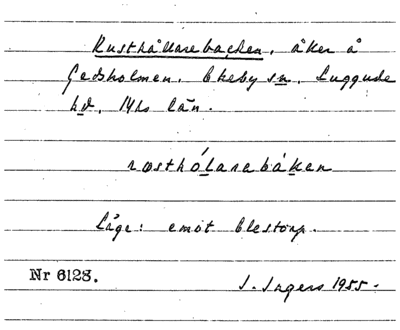 Rusthållarebacken, åker å
Gedsholmen, Ekeby sn, Luggude
hd, Mhs län.
rosthólarebákan
Läge: emot Elestorp.
Nr 6128.
J. Ingers 1955.